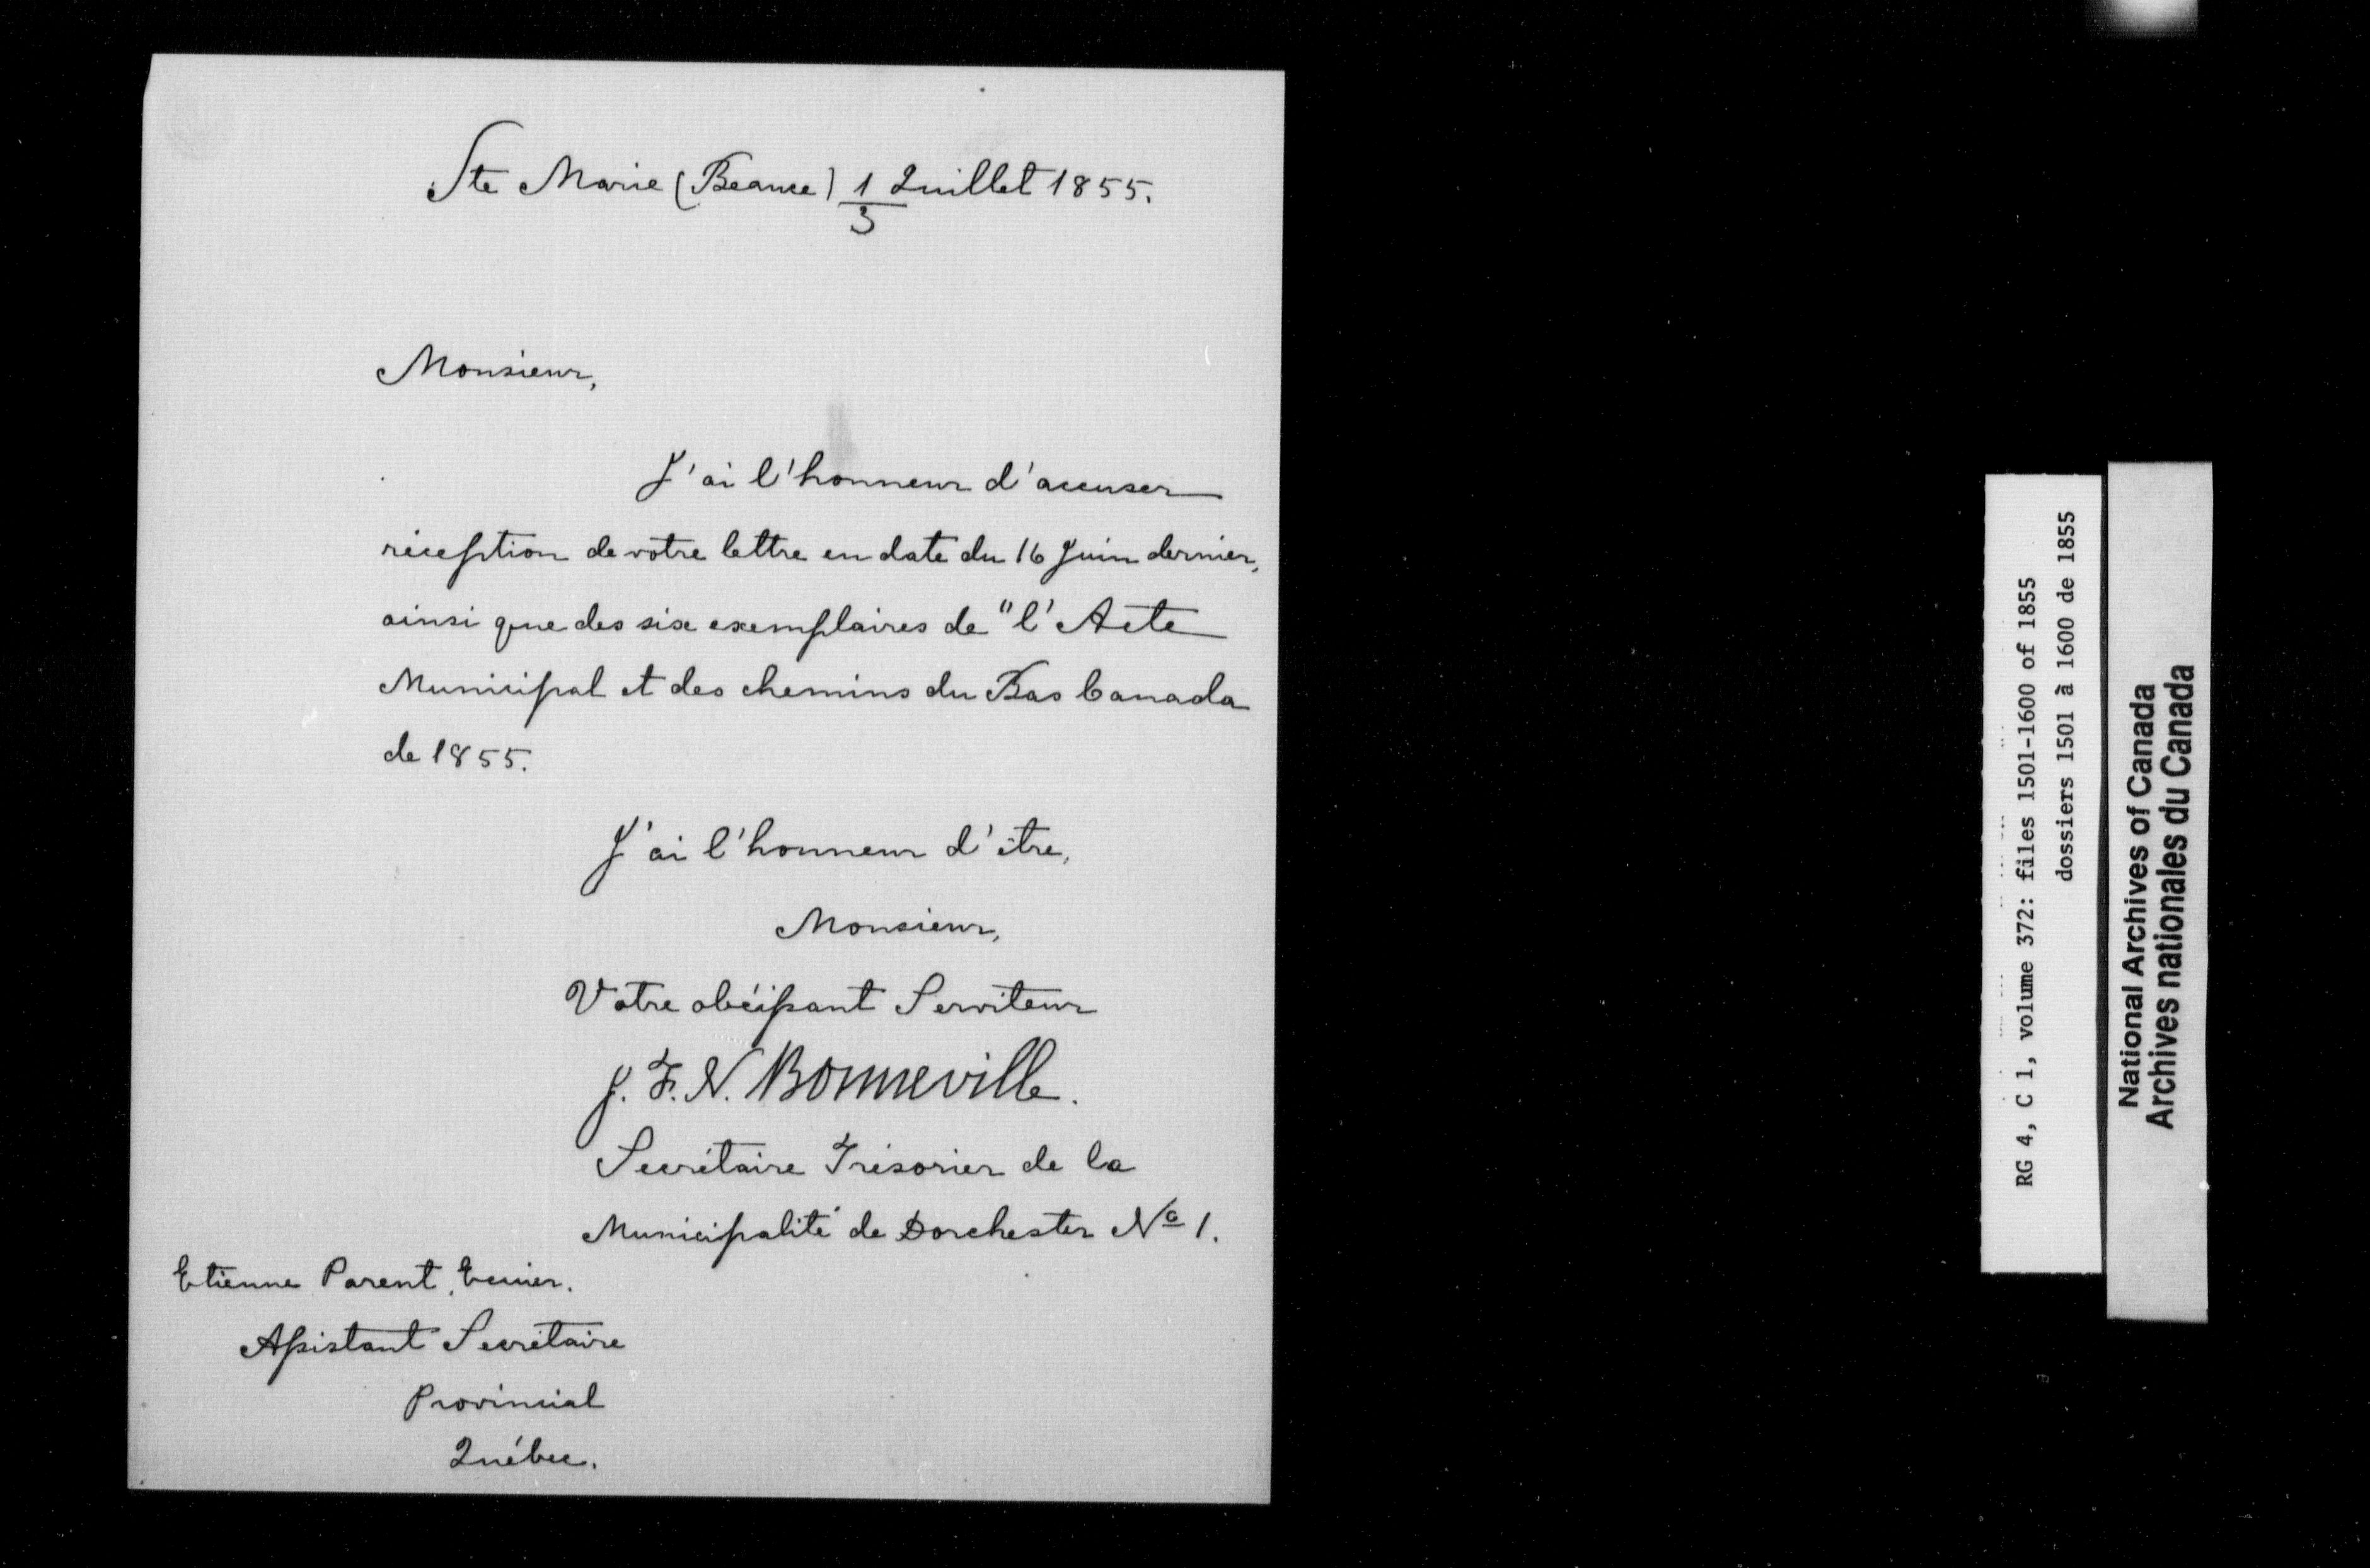 Ste Marie (Beauce) 1/3 Juillet 1855.
Monsieur,
J'ai l'honneur d'accuser
réception de votre lettre en date du 16 Juin dernier,
ainsi que des six exemplaires de "l'Acte
Municipal et des chemins du Bas Canada
de 1855.
J'ai l'honneur d'être,
Monsieur,
Votre obéissant Serviteur
J. F. N. Bonneville.
Secrétaire Trésorier de la
Municipalité de Dorchester No 1.
Etienne Parent, Ecuier.
Assistant Secrétaire
Provincial
Québec.
RG 4, C 1, volume 372: files 1501-1600 of 1855
dossiers 1501 à 1600 de 1855
National Archives of Canada
Archives nationales du Canada